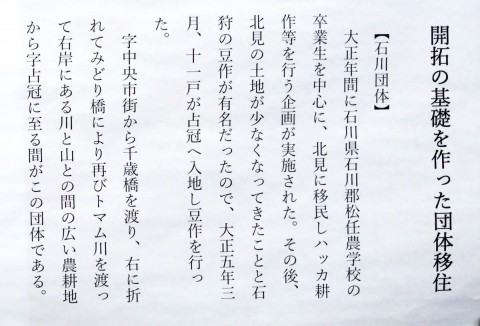 開拓の基礎を作った団体移住
【石川団体】
大正年間に石川県石川郡松任農学校の
卒業生を中心に、北見に移民しハッカ耕
作等を行う企画が実施された。その後、
北見の土地が少なくなってきたことと石
狩の豆作が有名だったので、大正五年三
月、十一戸が占冠へ入地し豆作を行っ
た。
字中央市街から千歳橋を渡り、右に折
れてみどり橋により再びトマム川を渡っ
て右岸にある川と山との間の広い農耕地
から字占冠に至る間がこの団体である。